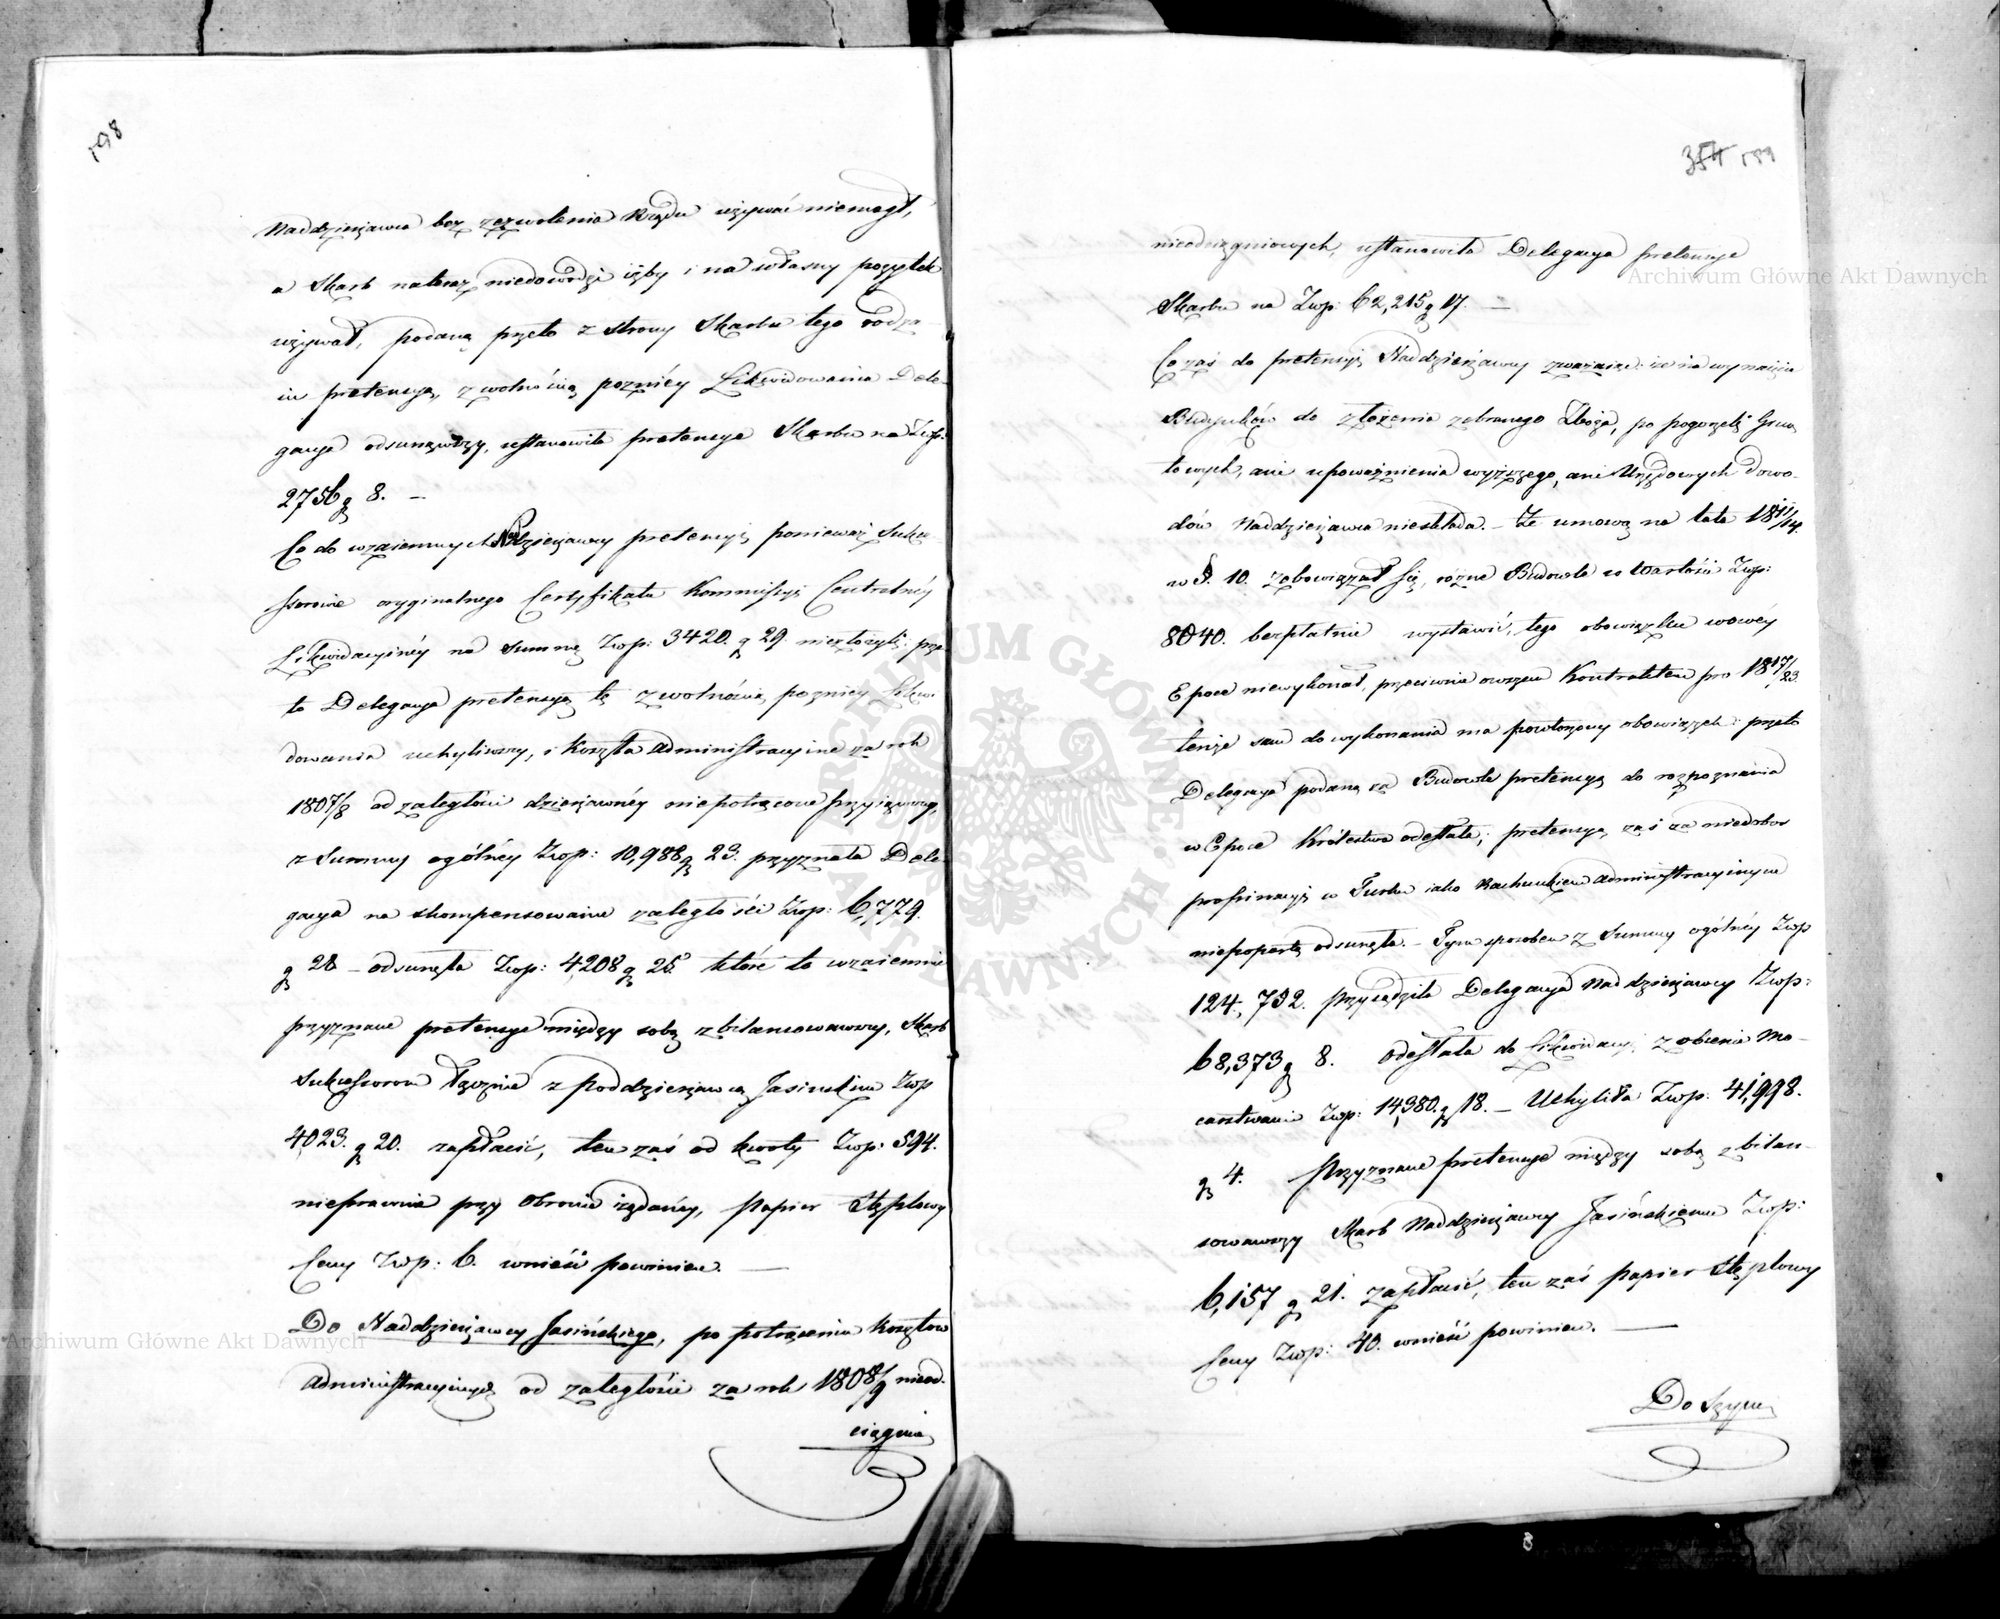 198
Naddzierżawca bez zezwolenia Rządu używać niemógł,
a Skarb nateraz niedowodzi iżby i na własny pożytek
używał, podaną przeto z strony Skarbu tego rodza
iu pretensyą, z wolnością pozniéy Likwidowania Dele-
gacya odsunąwszy, ustanowiła pretensye Skarbu na Zwp:
2756 g 8. —
Co do wzaiemnych Naddzierżawcy pretensyi, ponieważ Sukce
ssorowie oryginalnego Certyfikatu Kommissyi Centralnéy
Likwidacyinéy na summę Zwp: 3420. g 29. niezłożyli: prze
to Delegacya pretensyą tę z wolnością pozniéy Likwi
dowania uchyliwszy, i koszta administracyine za rok
1807/8 od zaległości dzierżawnéy niepotrącone przyiąwszy,
z Summy ogólnéy Zwp: 10,988 g 23. przyznała Dele
gacya na skompensowanie zaległości Zwp: 6,779.
g 28 — odsunęła Zwp: 4208 g 25. które to wzaiemnie
przyznane pretensye między sobą zbilansowawszy, Skarb
Sukcessorom łącznie z Poddzierżawcą Jasińskim Zwp
4023. g 20. zapłacić, ten zaś od kwoty Zwp: 594.
nieprawnie przy obronie żądanéy, Papier Stęplowy
Ceny Zwp: 6. wnieść powinien. —
Do Naddzierżawcy Jasińskiego, po potrąceniu kosztów
Administracyinych od zaległości za rok 1808/9 nieod-
ciągnio
354 199
nieodciągniowych, ustanowiła Delegacya pretensye
Skarbu na Zwp: 62,215 g 17. —
Co zaś do pretensyi Naddzierżawcy zważaiąc: że na wynaięcie
Budynków do złożenia zebranego Zboża, po pogorzeli Grun
towych, ani upoważnienia wyższego, ani Urzędowych dowo-
dów Naddzierżawca nieskłada. — Że umową na lata 1811/14.
w §. 10. zobowiązał się, różne Budowle w wartości Zwp:
8040. bezpłatnie wystawić, tego obowiązku w owéy
Epoce niewykonał, przeciwnie owszem Kontraktem pro 1817/23.
tenże sam do wykonania ma powtorzony obowiązek: przeto
Delegacya podaną za Budowle pretensyą do rozpoznania
w Epoce Królestwa odesłała; pretensyą zaś za niedobor
propinacyi w Turku iako Rachunkiem administracyinym
niepopartą odsunęła. — Tym sposobem z Summy ogólnéy Zwp
124,732. przysądziła Delegacya Naddzierżawcy Zwp:
68,373 g 8. odesłała do Likwidacyi z obcemi Mo-
carstwami Zwp: 14,380. g 18. — Uchyliła Zwp: 41,998.
g 4. Przyznane pretensye między sobą zbilan-
sowawszy Skarb Naddzierżawcy Jasińskiemu Zwp:
6,157 g 21. zapłacić, ten zaś papier Stęplowy
Ceny Zwp: 40. wnieść powinien. —
Do Szym
Archiwum Główne Akt Dawnych
Archiwum Główne Akt Dawnych
ARCHIWUM GŁÓWNE AKT DAWNYCH
8